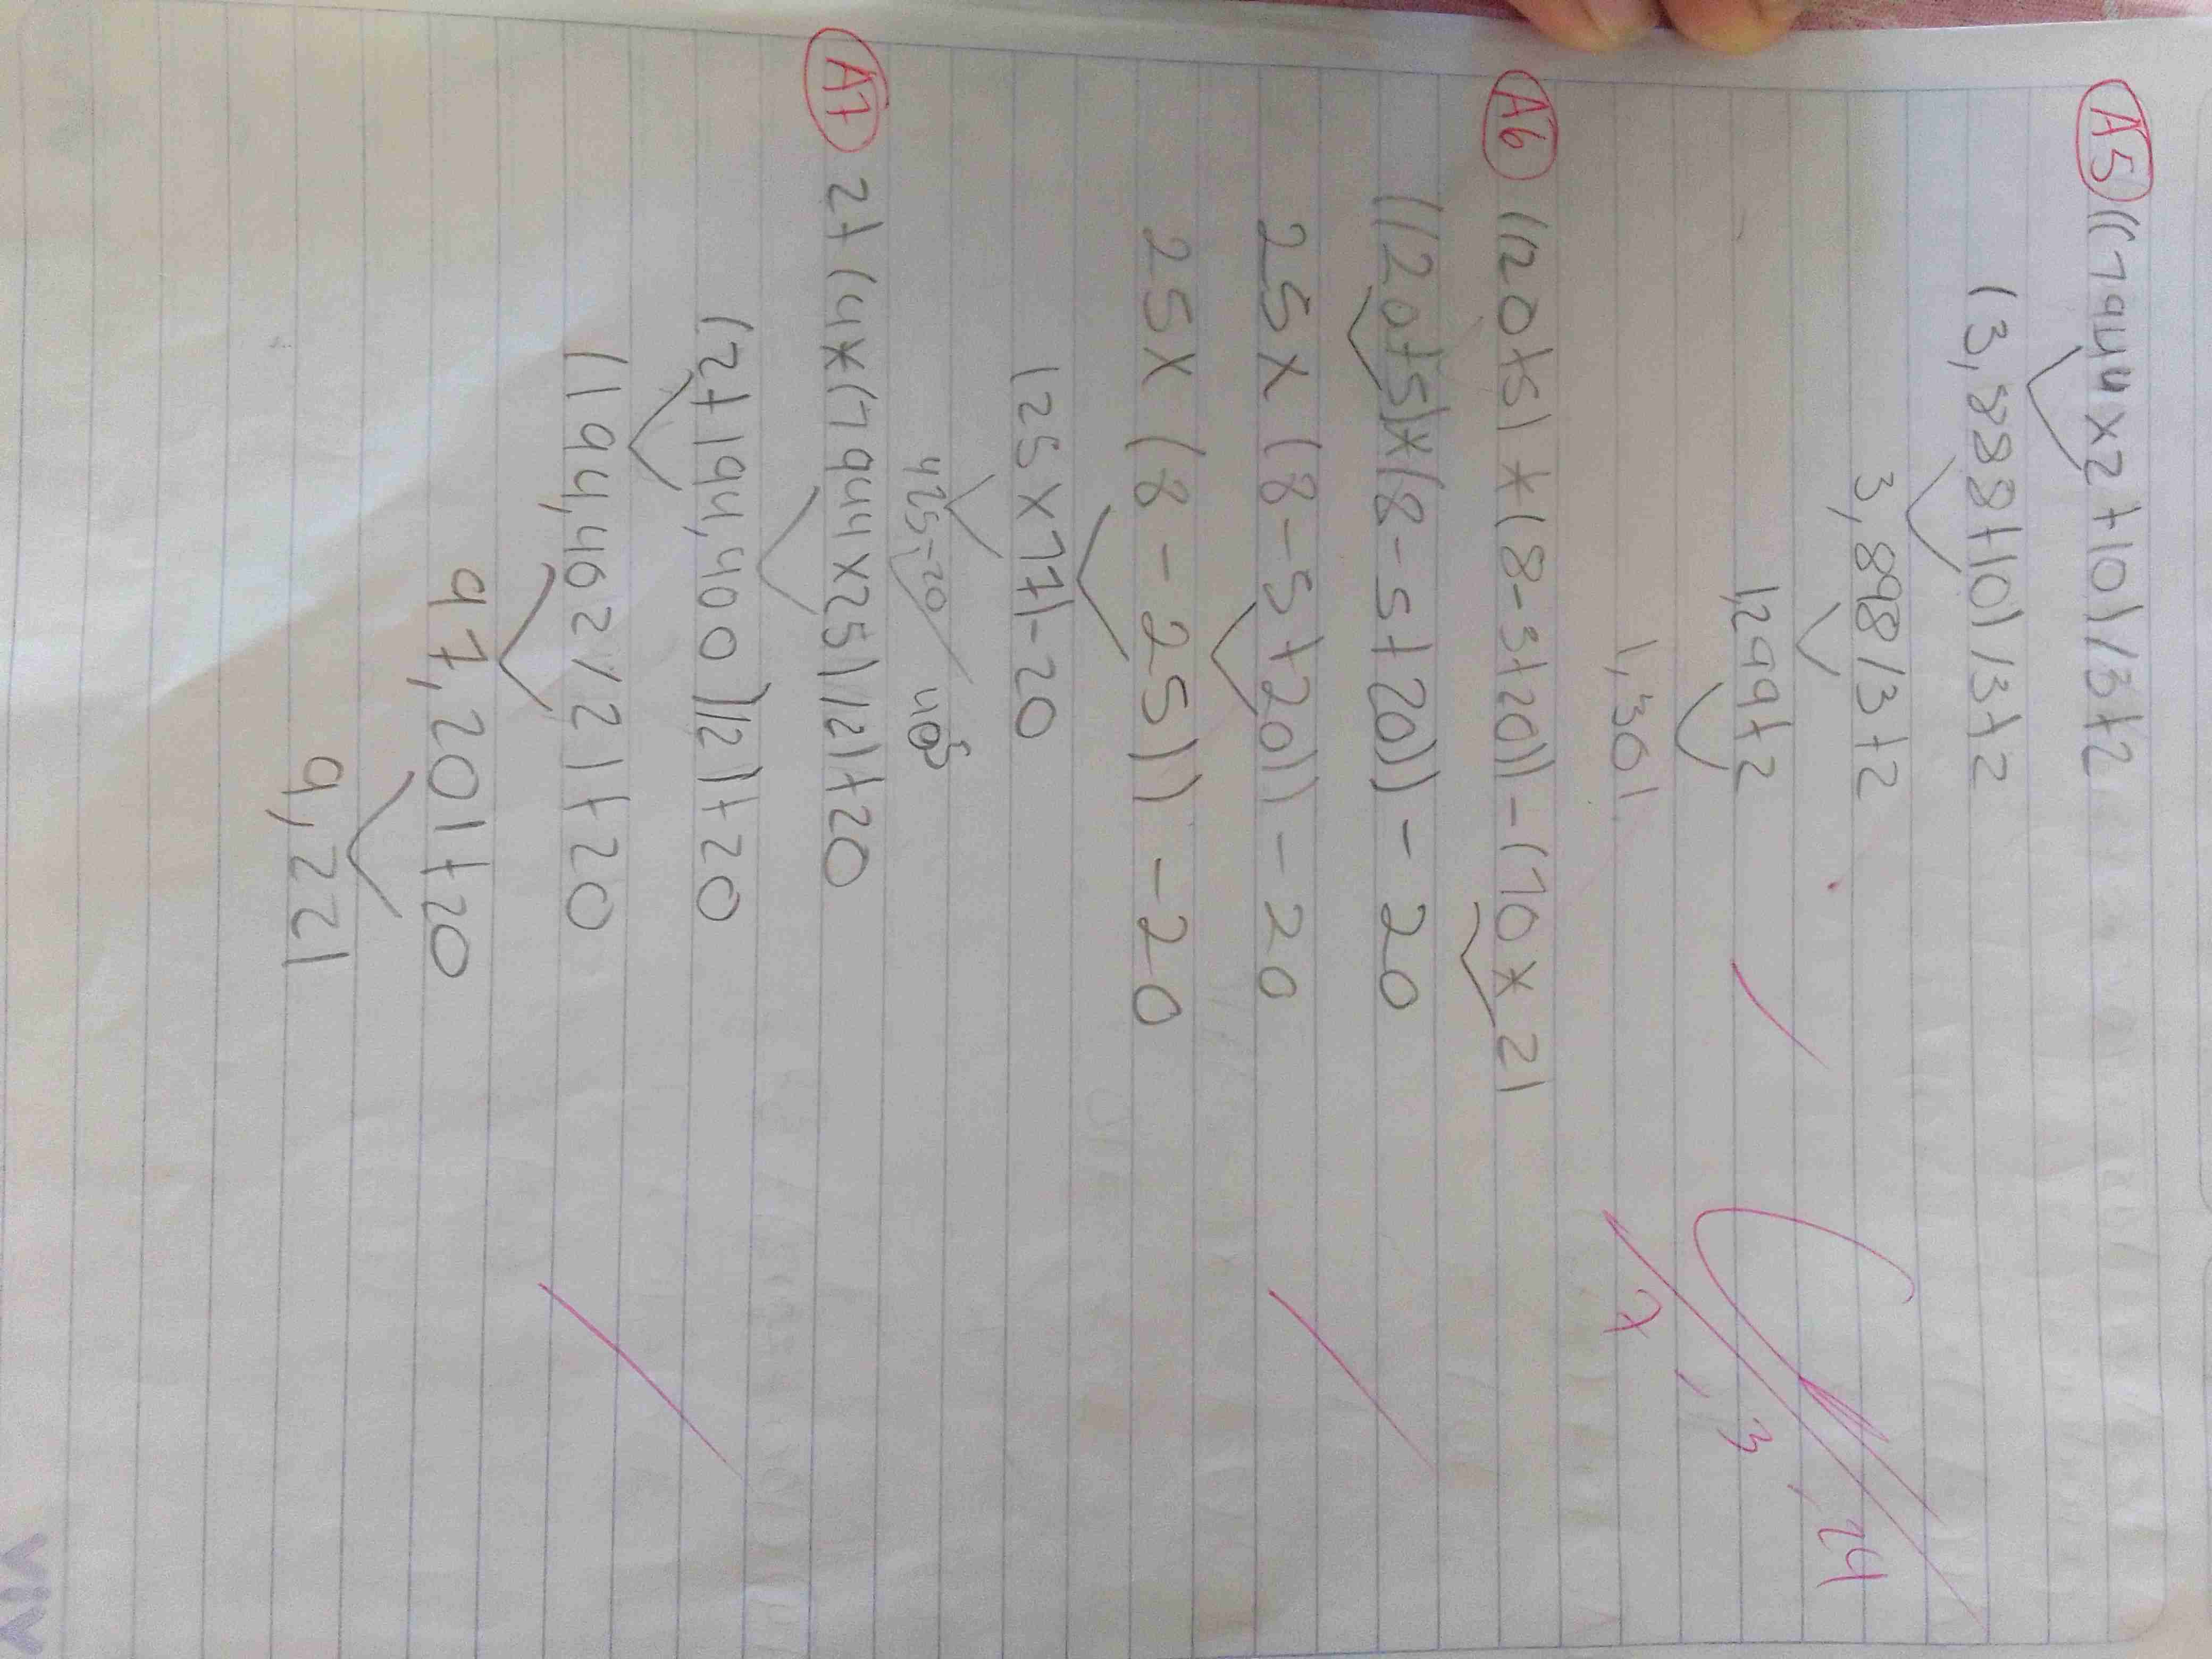 A5 ((1944x2+10)/3+2
(3,888+10)/3+2
3,898/3+2
1,299+2
1,301
A6 ((20+5)*(8-5+20))-(10*2)
((20+5)*(8-5+20))-20
25x(8-5+20))-20
25x(8-25))-20
(25x17)-20
425-20/ 405
A7 2+(4*(1944x25)/2)+20
(2+194,400)/2)+20
(194,402/2)+20
97,201+20
9,221
2,3,24
VIV